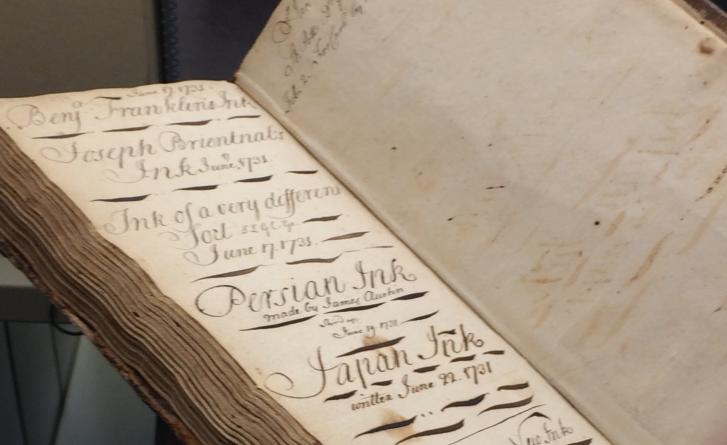 June 17. 1731.
Benjª Franklin's Ink
Joseph Brientnal's
Ink June, 1731
Ink of a very different
Sort
June 17. 1731.
Persian Ink
made by James Austin
June 19. 1731
Japan Ink
written June 22. 1731
New Ink